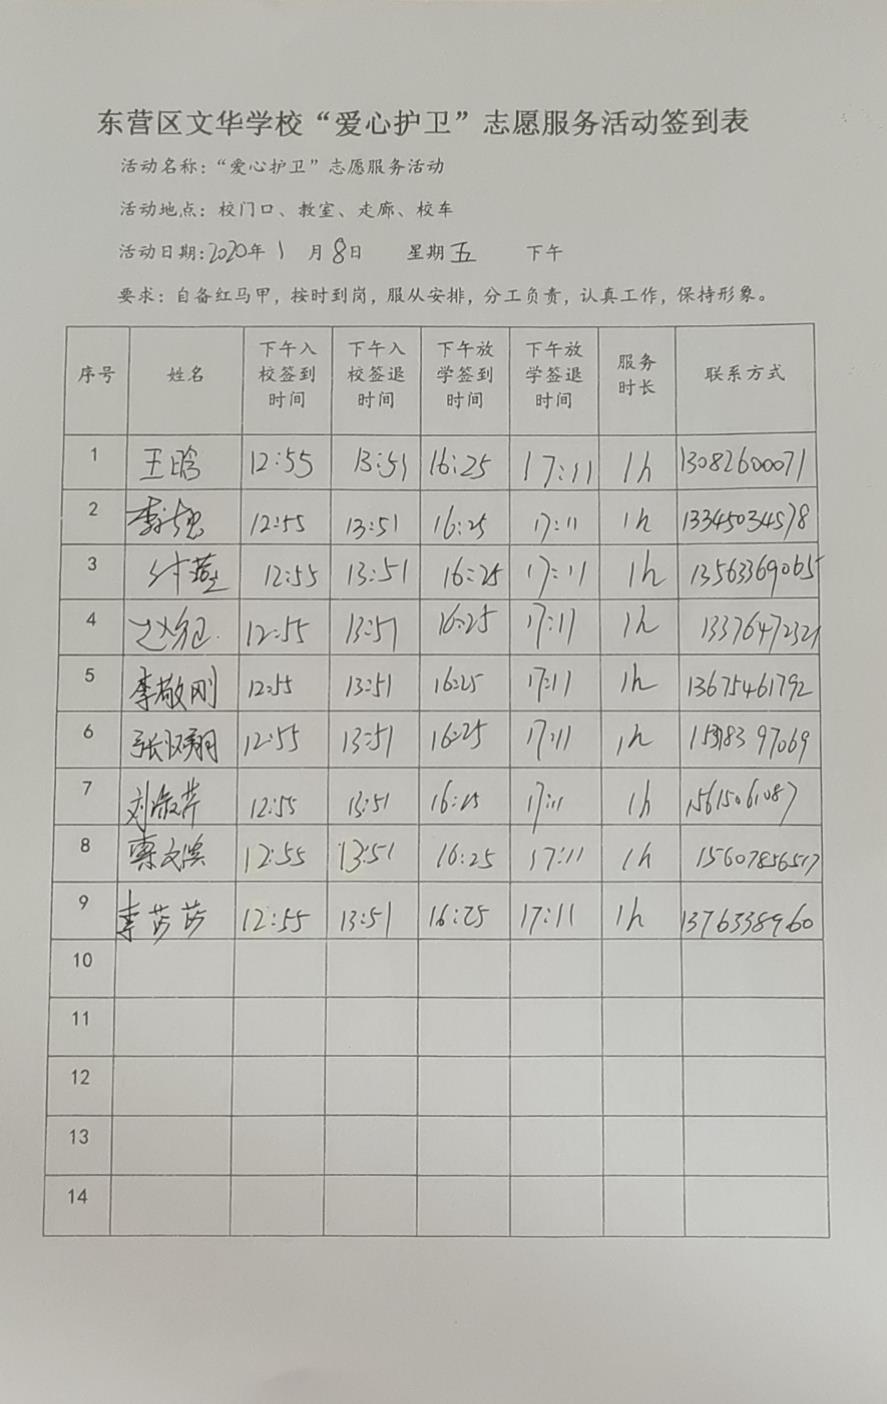 东营区文华学校“爱心护卫”志愿服务活动签到表
活动名称:“爱心护卫”志愿服务活动
活动地点:校门口、教室、走廊、校车
活动日期:2020年 1 月 8日 星期 五 下午
要求:自备红马甲,按时到岗,服从安排,分工负责,认真工作,保持形象。
序号 姓名 下午入校签到时间 下午入校签退时间 下午放学签到时间 下午放学签退时间 服务时长 联系方式
1 王晗 12:55 13:51 16:25 17:11 1h 13082600071
2 12:55 13:51 16:25 17:11 1h 13345034578
3 付燕 12:55 13:51 16:25 17:11 1h 13563369065
4 12:55 13:51 16:25 17:11 1h 13376472321
5 李敬刚 12:55 13:51 16:25 17:11 1h 13675461792
6 12:55 13:51 16:25 17:11 1h
7 刘淑芹 12:55 13:51 16:25 17:11 1h 15615061087
8 12:55 13:51 16:25 17:11 1h 15607856517
9 李芳芳 12:55 13:51 16:25 17:11 1h 1376338960
10
11
12
13
14